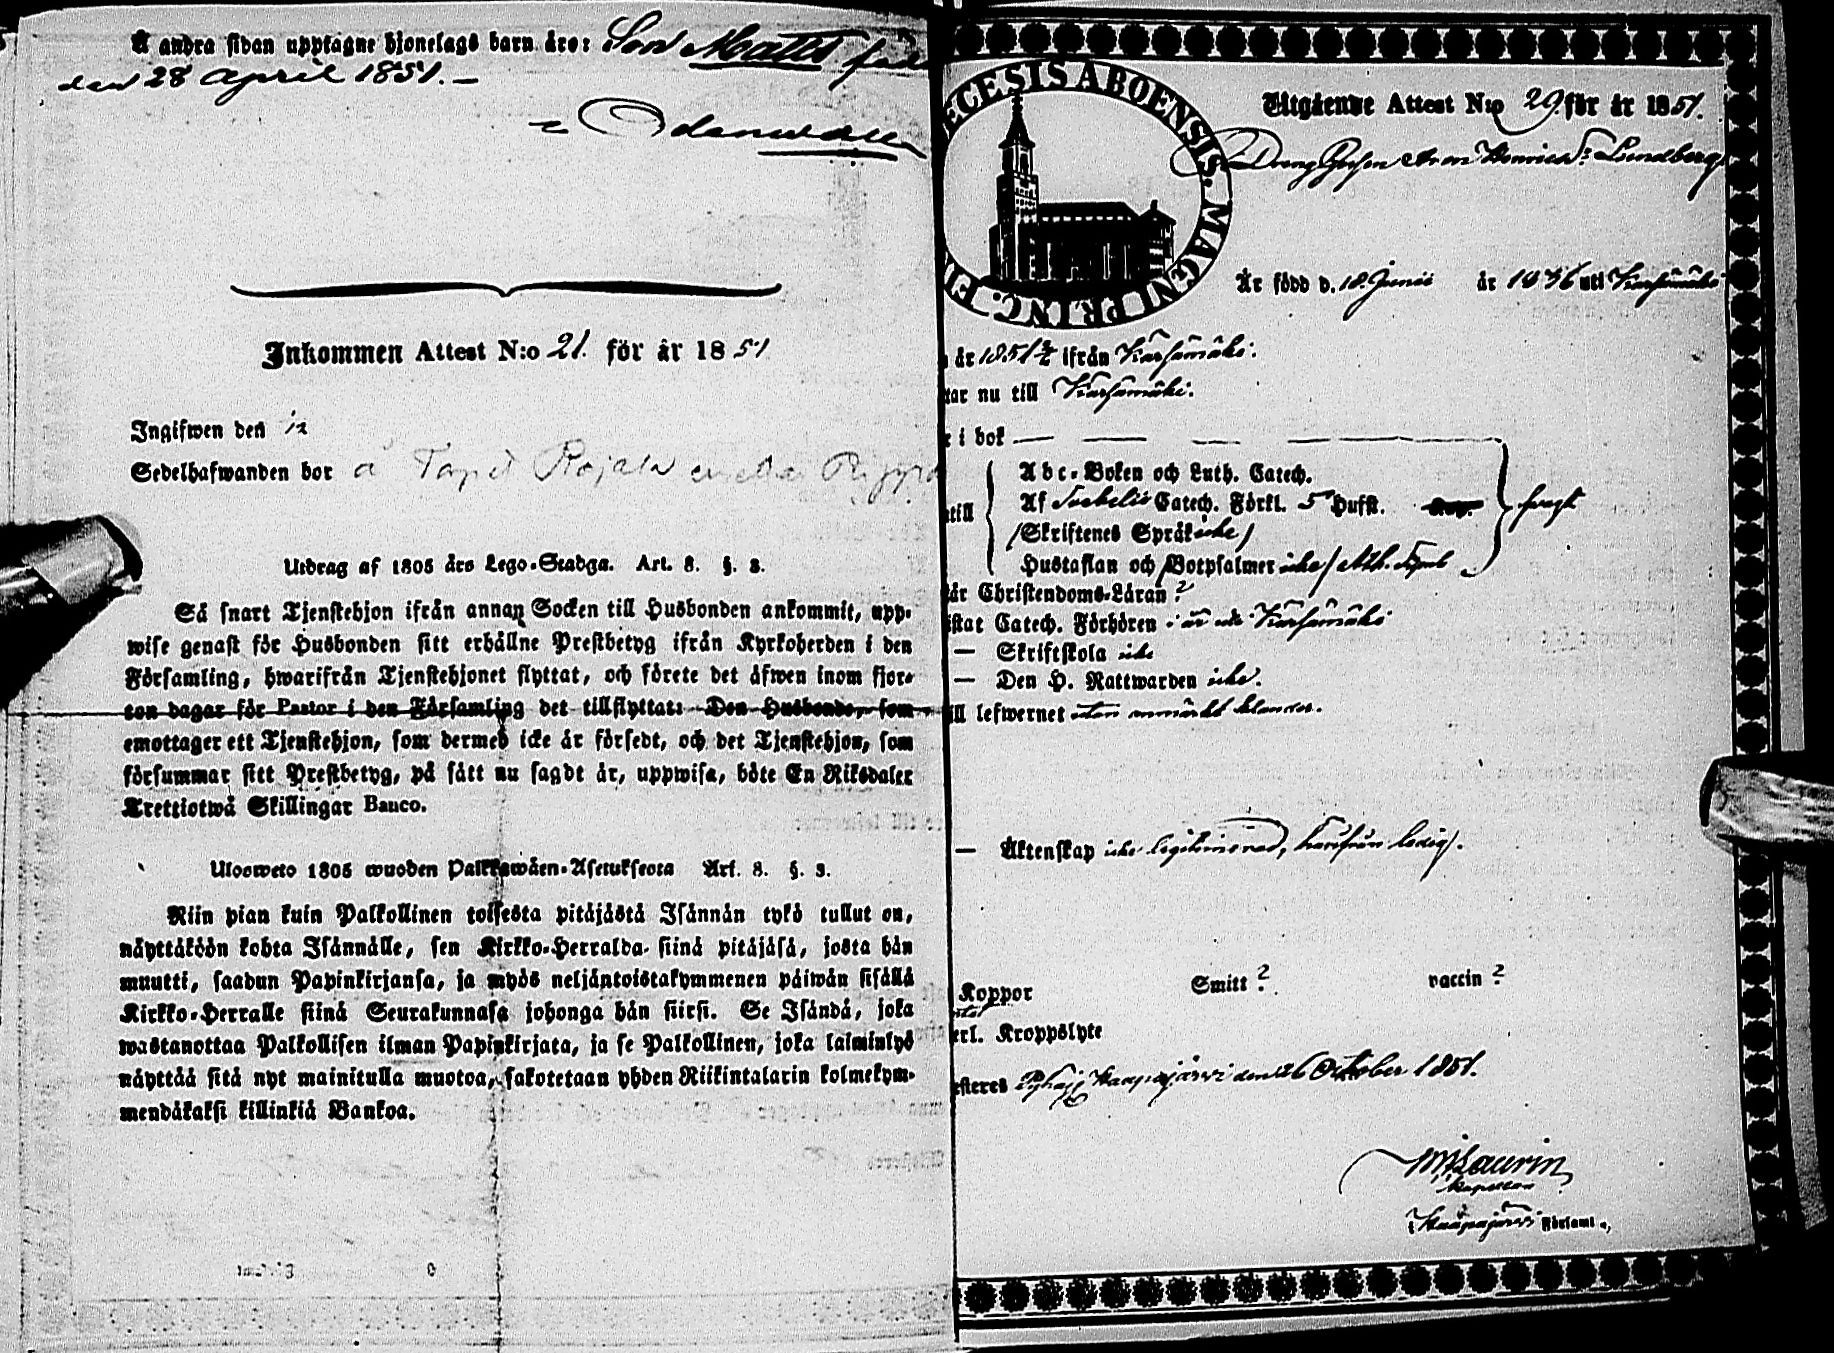 Å andra sidan upptagne hjonelags barn äro: Son Matts född
den 28 April 1851. —
Inkommen Attest N:o 21. för år 1851
Ingifwen den
Sedelhafwanden bor å
Utdrag af 1805 års Lego-Stadga. Art. 8. §. 3.
Så snart Tjenstehjon ifrån annan Socken till Husbonden ankommit, upp-
wise genast för Husbonden sitt erhållne Prestbetyg ifrån Kyrkoherden i den
Församling, hwarifrån Tjenstehjonet flyttat, och förete det äfwen inom fjor-
ton dagar för Pastor i den Församling det tillflyttat: Den Husbonde, som
emottager ett Tjenstehjon, som dermed icke är försedt, och det Tjenstehjon, som
försummar sitt Prestbetyg, på sätt nu sagdt är, uppwisa, böte En Riksdaler
Trettiotwå Skillingar Banco.
Ulosweto 1805 wuoden Palkkawäen-Asetuksesta Art. 8. §. 3.
Niin pian kuin Palkollinen toisesta pitäjästä Isännän tykö tullut on,
näyttäköön kohta Isännälle, sen Kirkko-Herralda siinä pitäjäsä, josta hän
muutti, saadun Papinkirjansa, ja myös neljäntoistakymmenen päiwän sisällä
Kirkko-Herralle siinä Seurakunnasa johonga hän siirsi. Se Isändä, joka
wastanottaa Palkollisen ilman Papinkirjata, ja se Palkollinen, joka laiminlyö
näyttää sitä nyt mainitulla muotoa, sakotetaan yhden Riikintalarin kolmekym-
mendäkaksi killinkiä Bankoa.
ECESIS ABOENSIS. MAGNI PRINC. FI
Utgående Attest N:o 29 för år 1851.
Dreng Gossen Aron Henrics: Lundberg
Är född d. 18. Junii år 1836 uti Kärsämäki
år 1851 ifrån Kärsämäki.
tar nu till Kärsämäki.
r i bok — — — —
till Abc-Boken och Luth. Catech.
Af Tsebelii Catech. Förkl. 5 Hufst. svagt
(Skriftenes Språk icke)
Hustaflan och Botpsalmer icke / Ath. Symb
år Christendoms-Läran ?
istat Catech. Förhören i år uti Kärsämäki
— Skriftskola icke
— Den H. Nattwarden icke.
ill lefwernet utan anmärkt klander.
— Äktenskap icke legitimerad, härifrån ledig.
Koppor Smitt ? vaccin ?
erl. Kroppslyte
esteres Pyhäj. Haapajärvi den 26 October 1851.
Laurin
Kapellan
Haapajärvi Församl.